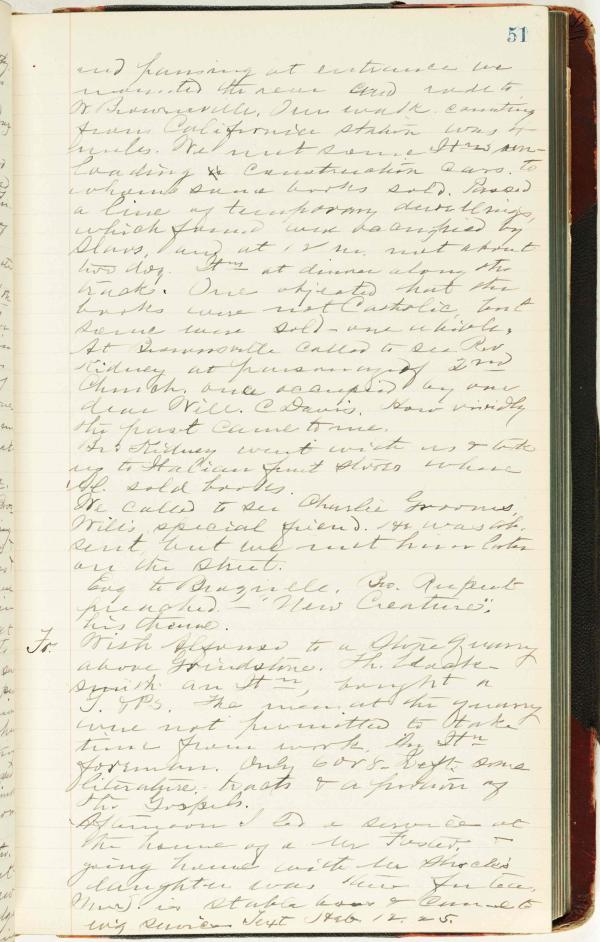 51
and passing at entrance we
mounted the rear and rode to
W Brownsville. Our walk counting
from California station was 4
miles. We met some Itns un-
loading construction cars, to
whom some books sold. Passed
a line of temporary dwellings,
which found was occupied by
Slavs, and at 12 m. met about
two doz. Itns at dinner along the
track. One objected that the
books were not Catholic, but
some were sold - one whole.
At Brownsville called to see Rev
Kidney at parsonage of 2nd
Church, once occupied by our
dear Will. C. Davis. How vividly
the past came to me.
Br. Kidney went with us & took
us to Italian fruit stores where
Al. sold books.
We called to see Charlie Grooms,
Will's special friend. He was ab-
sent, but we met him later
on the street.
Evg to Braznell. Bro. Rupert
preached - "New Creature",
his theme.
Fr. With Alfonso to a Stone Quarry
above Grindstone. Th. black-
smith an Itn, bought a
T. & Ps. The men at the quarry
were not permitted to take
time from work, by Itn
foreman. Only 6 or 8. Left some
literature, tracts & a portion of
th. Gospels.
Afternoon I led a service at
the home of a Mr Foster, -
going home with Mr
daughter was there for tea.
in stable & came to
evg service Text Heb 12.25.